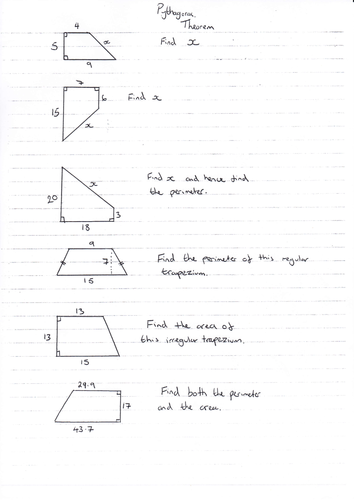 Pythagoras
Theorem
4
5
x
9
Find x
7
6
15
x
Find x
20
x
3
18
Find x and hence find
the perimeter.
9
7
15
Find the perimeter of this regular
trapezium.
13
13
15
Find the area of
this irregular trapezium.
29.9
17
43.7
Find both the perimeter
and the area.